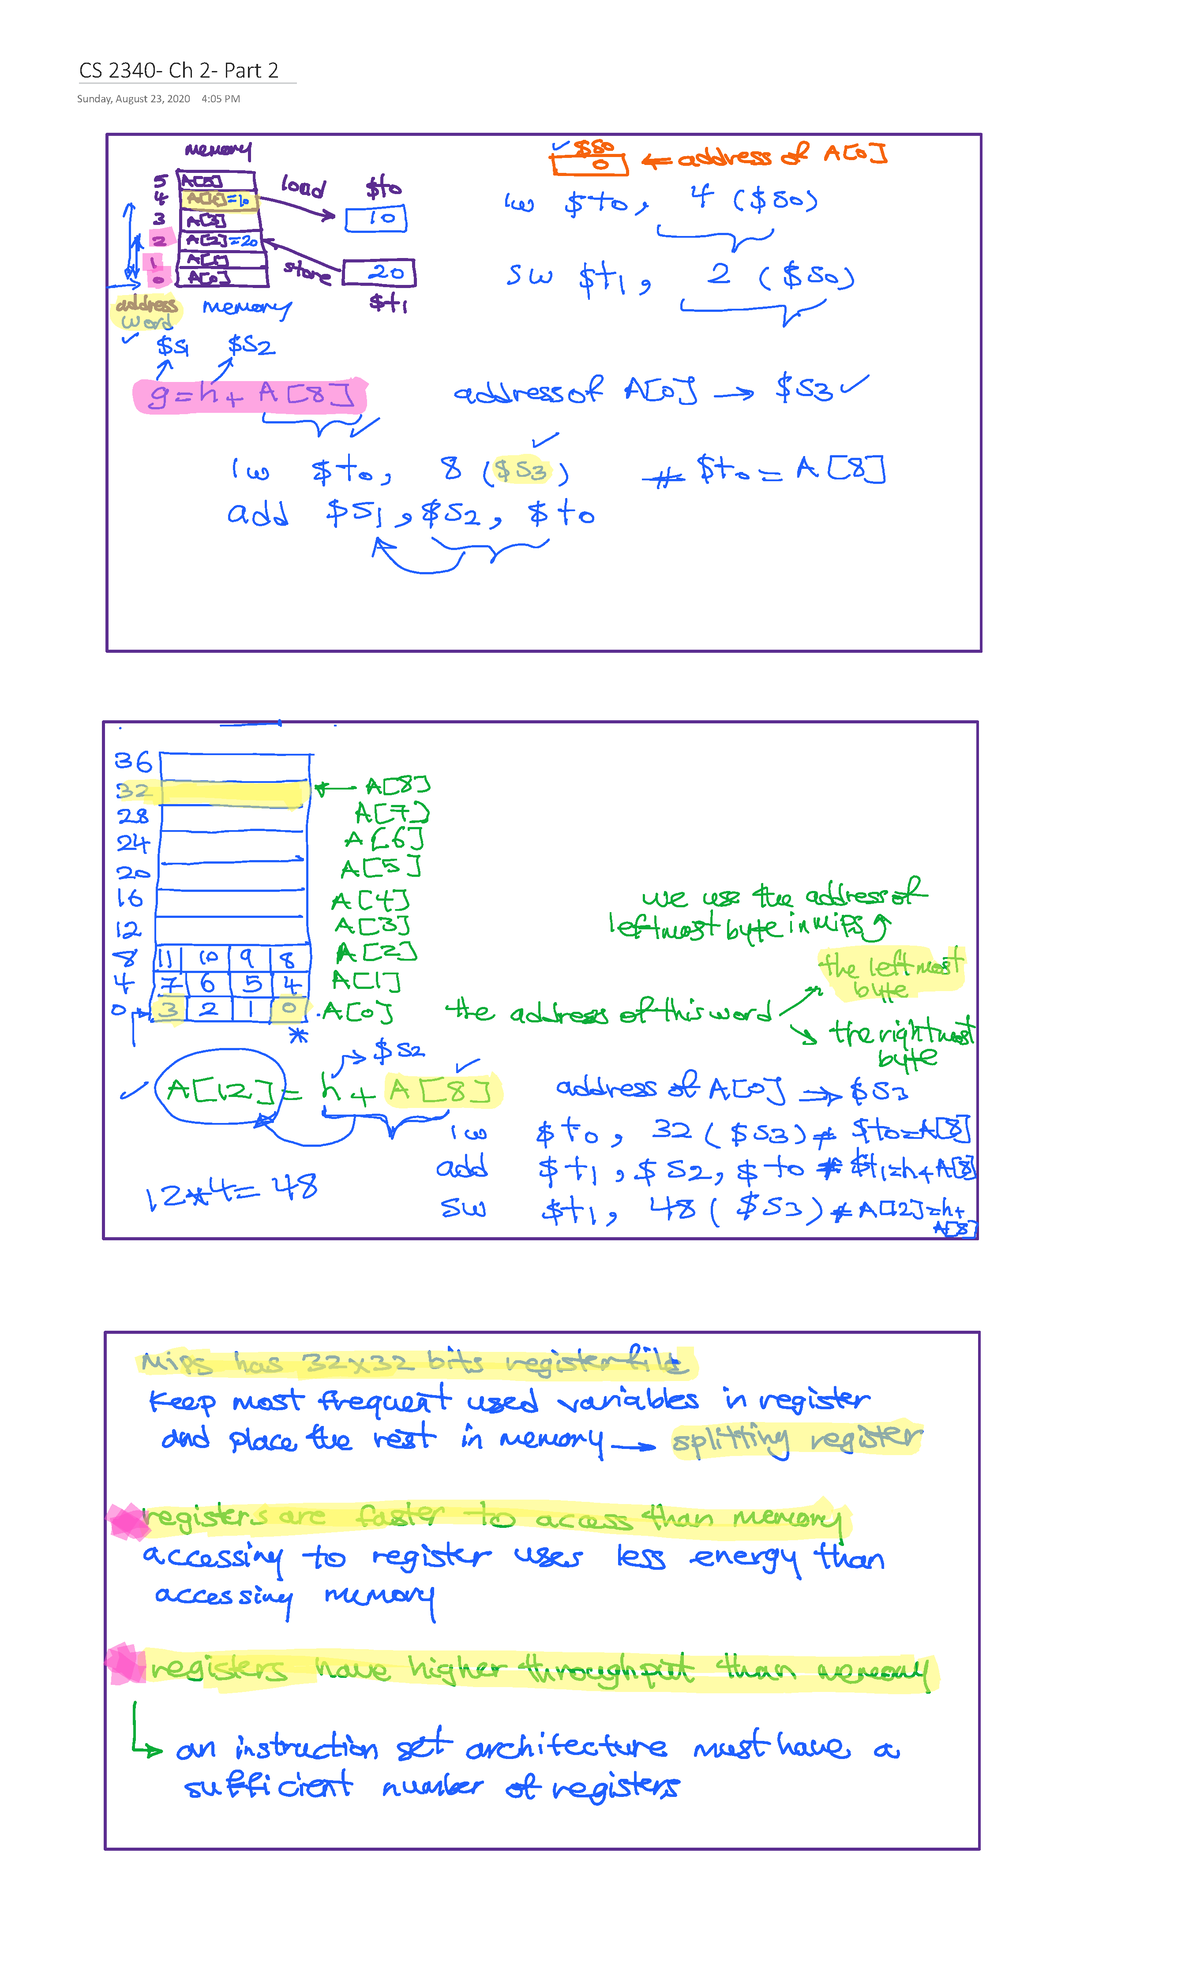 CS 2340- Ch 2- Part 2
Sunday, August 23, 2020 4:05 PM
memory
$s0
0 ← address of A[0]
5 A[5]
4 A[4]=10
3 A[3]
2 A[2]=20
1 A[1]
0 A[0]
load $t0
10
store 20
$t1
address memory
word
lw $t0, 4 ($s0)
sw $t1, 2 ($s0)
$s1 $s2
g=h+ A[8] address of A[0] → $s3
lw $t0, 8 ($s3) # $t0 = A[8]
add $s1, $s2, $t0
36
32 ← A[8]
28 A[7]
24 A[6]
20 A[5]
16 A[4]
12 A[3]
8 11 10 9 8 A[2]
4 7 6 5 4 A[1]
0 3 2 1 0 A[0]
*
we use the address of
leftmost byte in mips
the leftmost
byte
the address of this word
the rightmost
byte
$s2
A[12] = h + A[8] address of A[0] ⇒ $s3
lw $t0, 32 ($s3) # $t0=A[8]
add $t1, $s2, $t0 # $t1=h+A[8]
12*4=48
sw $t1, 48 ($s3) # A[12]=h+
A[8]
Mips has 32x32 bits register file
Keep most frequent used variables in register
and place the rest in memory → splitting register
registers are faster to acess than memory
accessing to register uses less energy than
accessing memory
registers have higher throughput than memory
an instruction set architecture must have a
sufficient number of registers